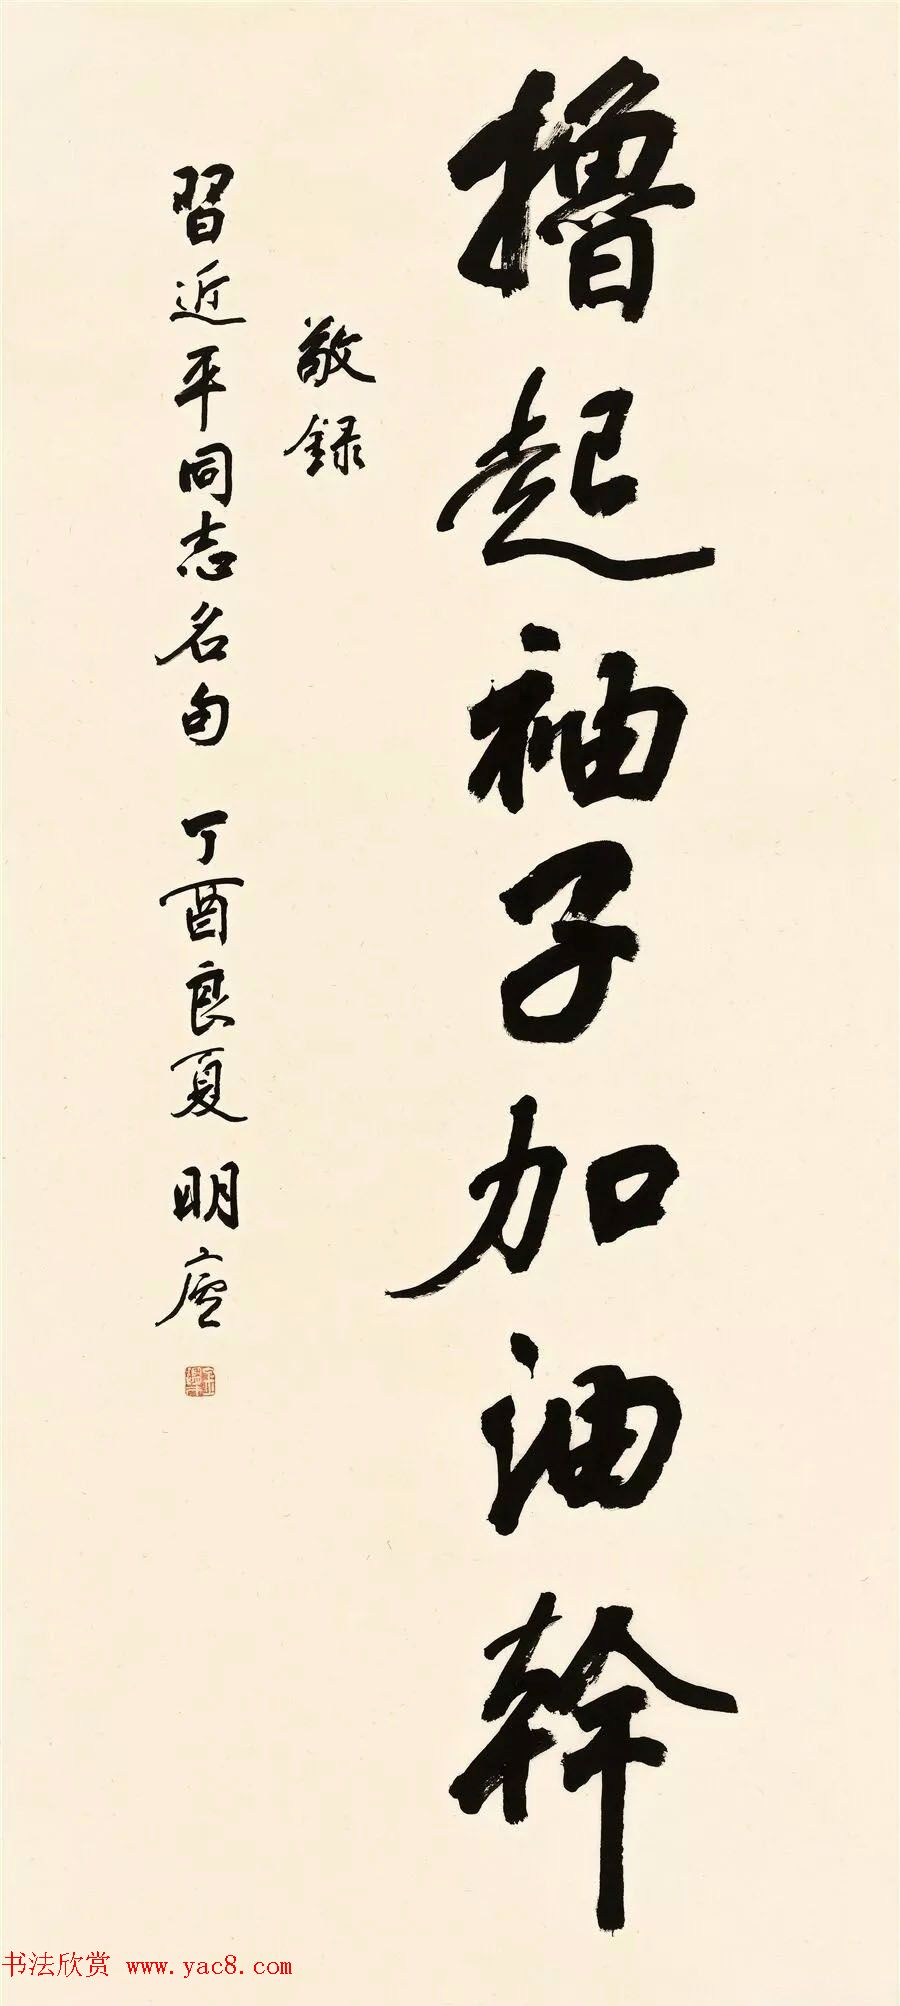 擼起袖子加油幹
敬録
習近平同志名句 丁酉良夏 明廬
书法欣赏 www.yac8.com